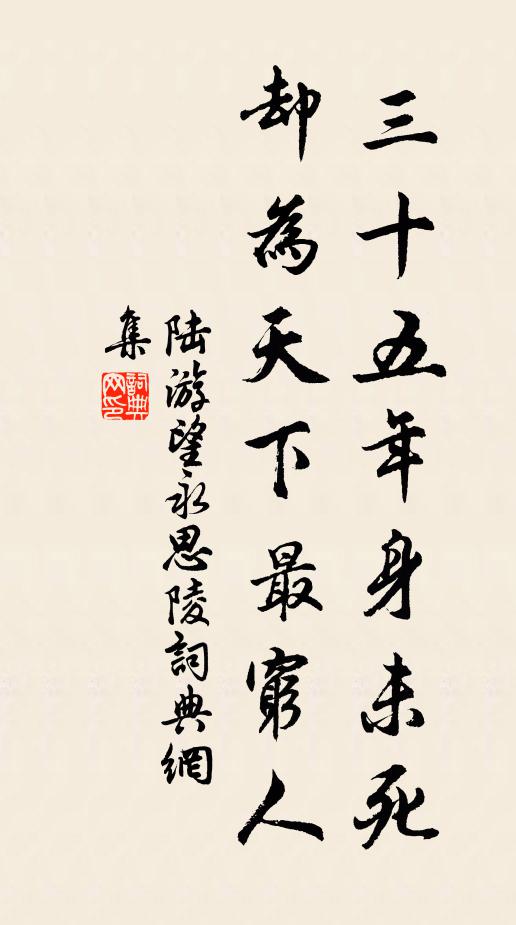 三十五年身未死
却為天下最窮人
陸游望永思陵詞典網
集
詞典网印